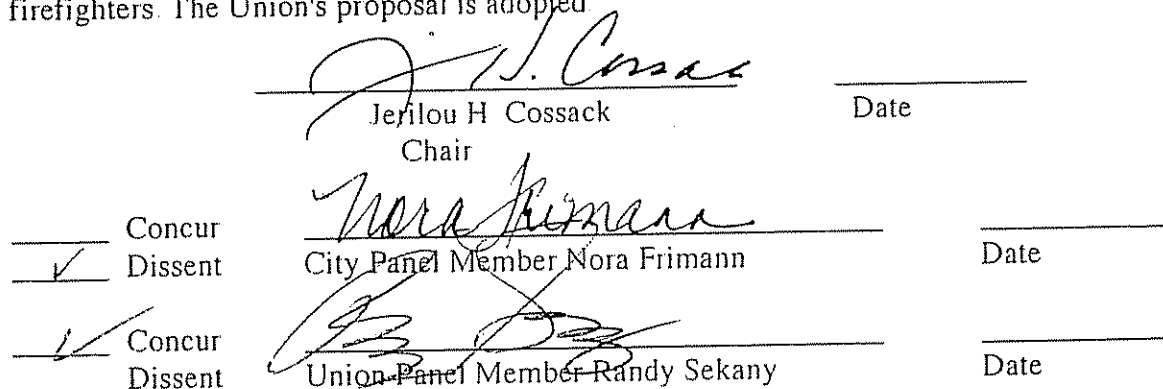 firefighters. The Union's proposal is adopted.
J H. Cossack
Jerilou H Cossack
Date
Chair
Concur
Nora Frimann
✓ Dissent
City Panel Member Nora Frimann
Date
✓ Concur
Dissent
Union Panel Member Randy Sekany
Date